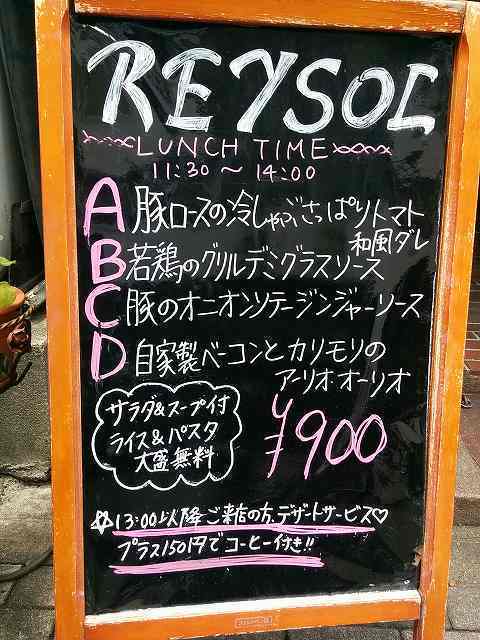 REYSOL
LUNCH TIME
11:30 ～ 14:00
A 豚ロースの冷しゃぶさっぱりトマト
和風ダレ
B 若鶏のグリルデミグラスソース
C 豚のオニオンソテージンジャーソース
D 自家製ベーコンとカリモリの
アーリオ・オーリオ
サラダ&スープ付
ライス&パスタ
大盛無料
¥900
☆13:00以降ご来店の方、デザートサービス♡
プラス150円でコーヒー付き!!